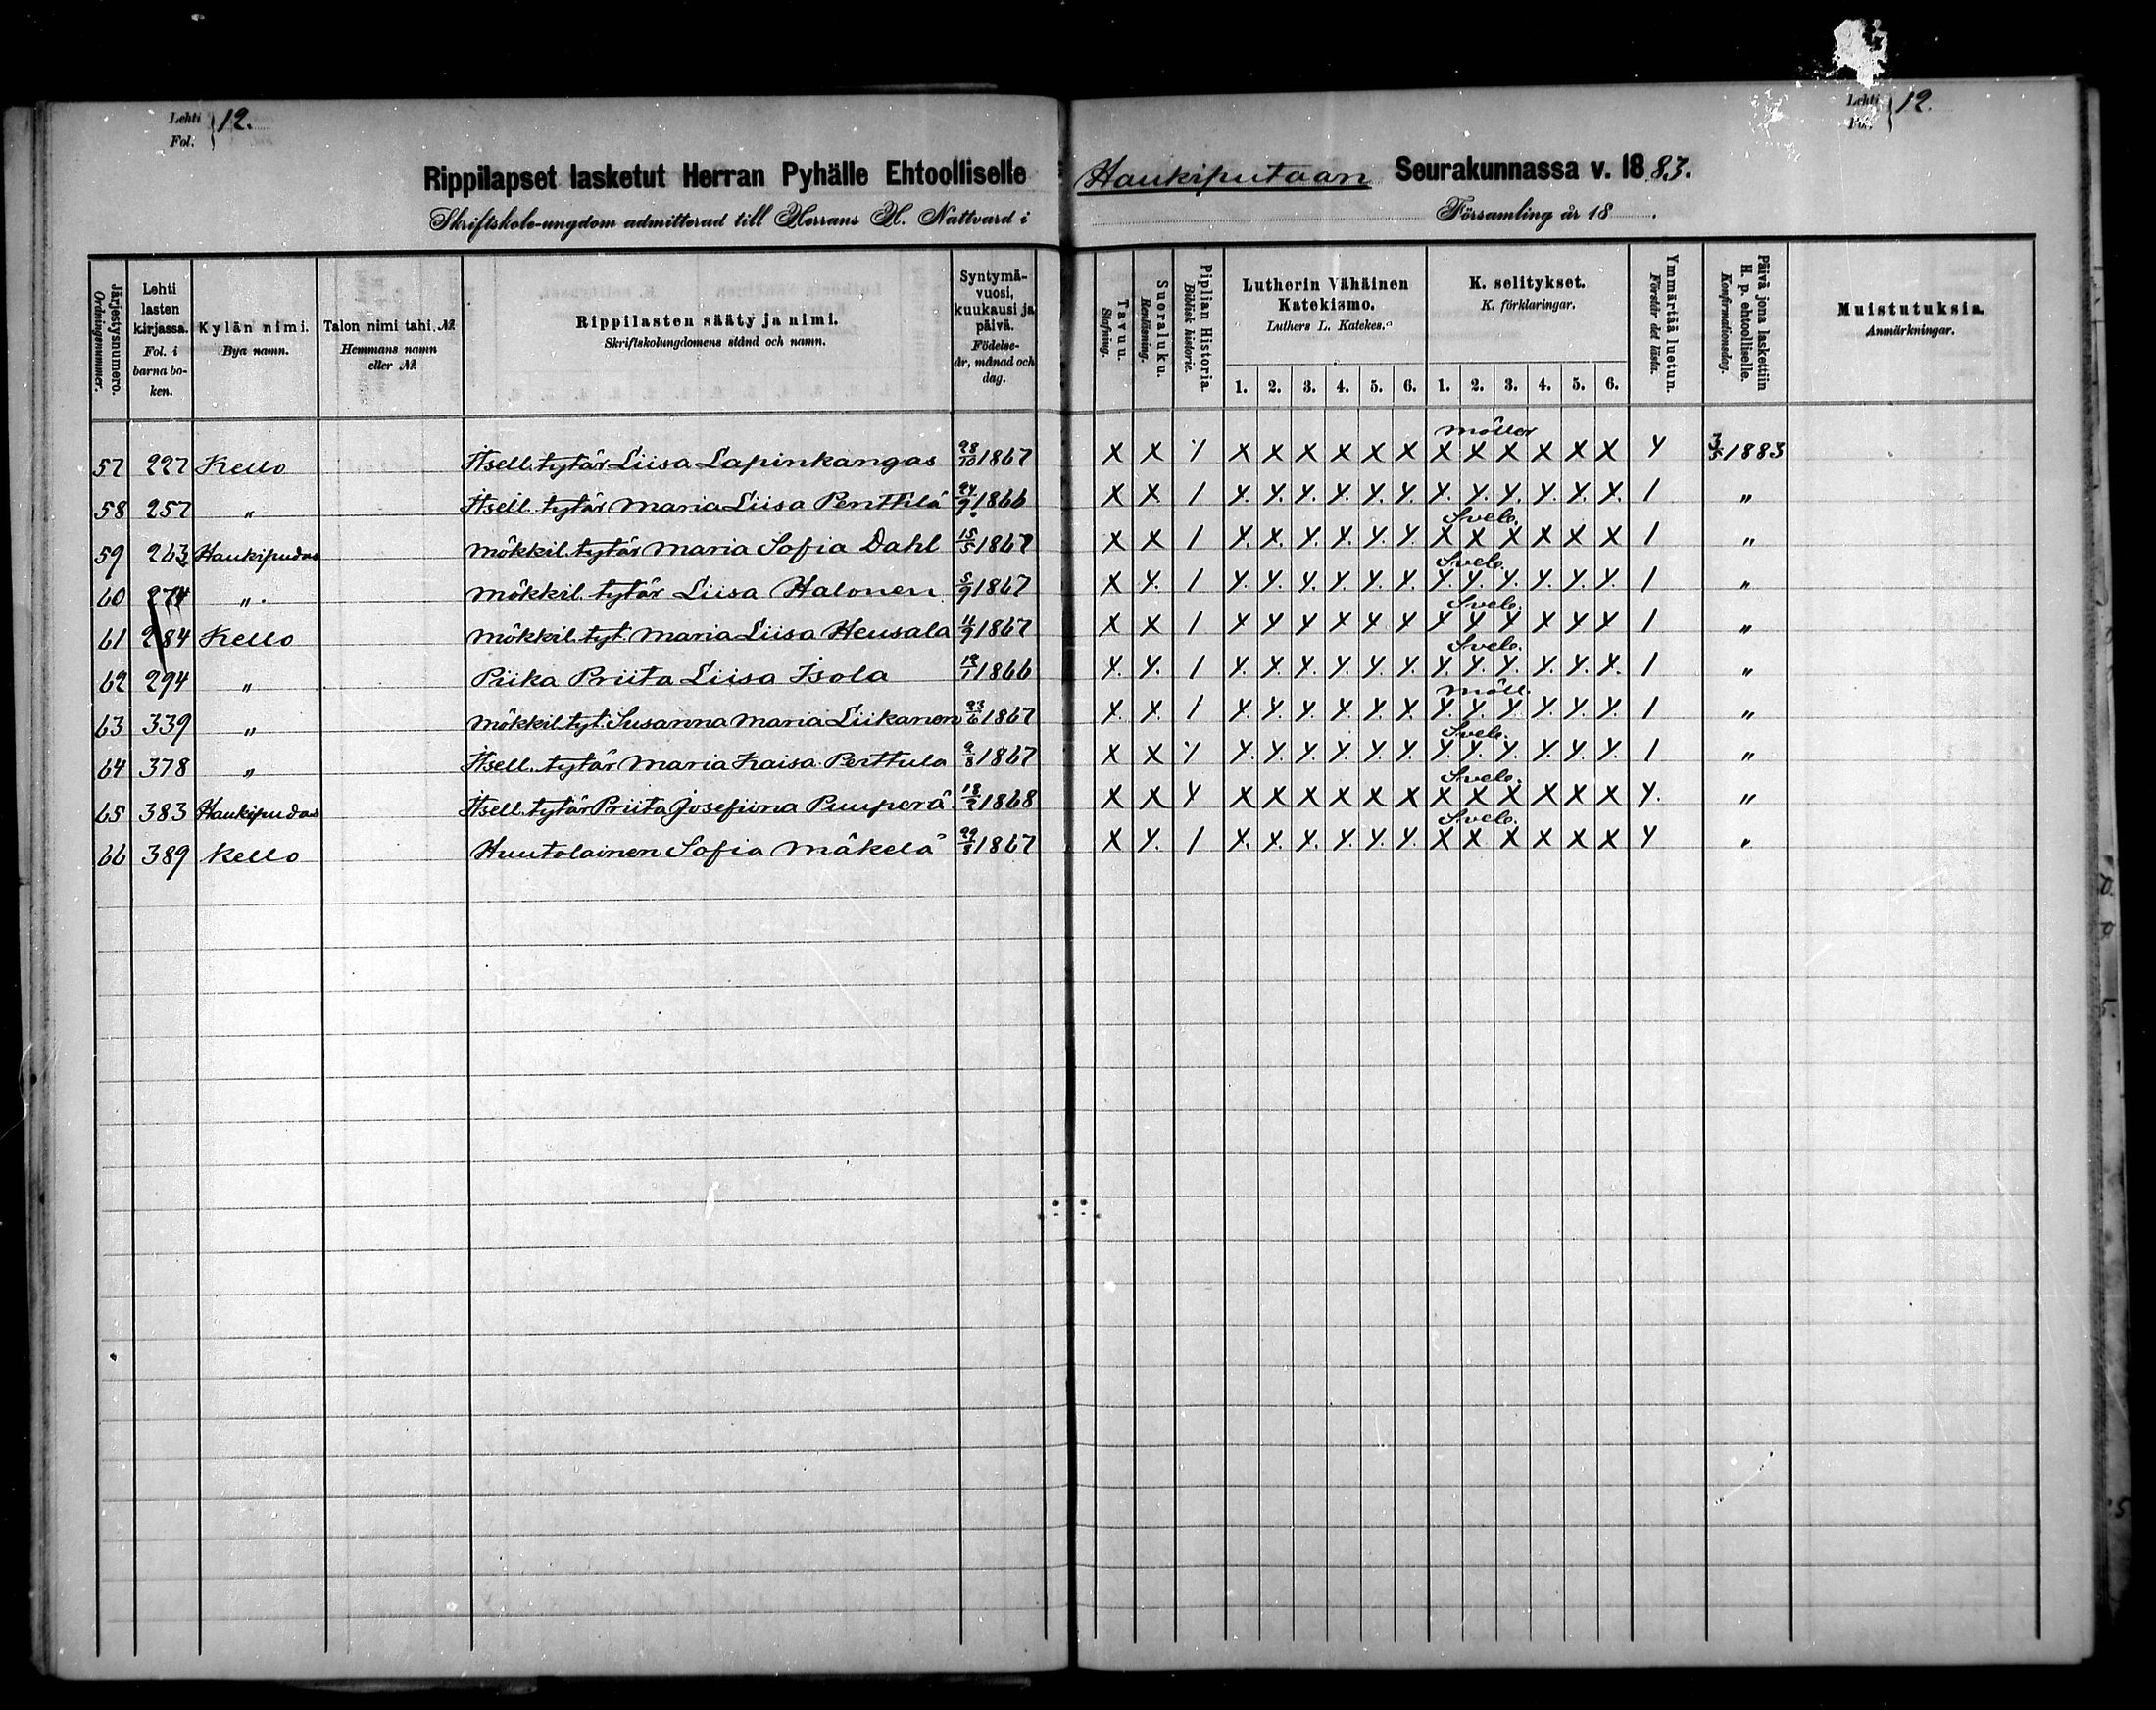 Lehti Fol. } 12.
Lehti Fol. } 12.
Rippilapset lasketut Herran Pyhälle Ehtoolliselle Haukiputaan Seurakunnassa v. 1883.
Skriftskole-ungdom admitterad till Herrans H. Nattvard i Församling år 18 .
Järjestysnumero. Ordningsnummer.
Lehti lasten kirjassa. Fol. i barnaboken.
Kylän nimi. Bya namn.
Talon nimi tahi №. Hemmans namn eller №.
Rippilasten sääty ja nimi. Skriftskolungdomens stånd och namn.
Syntymä-vuosi, kuukausi ja päivä. Födelse-år, månad och dag.
Tavuu. Stafning.
Suoraluku. Renläsning.
Piplian Historia. Biblisk historie.
Lutherin Vähäinen Katekismo. Luthers L. Katekes.
K. selitykset. K. förklaringar.
Ymmärtää luetun. Förstår det lästa.
Päivä jona laskettiin H. p. ehtoolliselle. Konfirmationsdag.
Muistutuksia. Anmärkningar.
1. 2. 3. 4. 5. 6. 1. 2. 3. 4. 5. 6.
Möller
57 227 Kello Itsell. tytär Liisa Lapinkangas 28/10 1867 X X Y X X X X X X X X X X X X Y 3/5 1883
58 257 " Itsell. tytär Maria Liisa Penttilä 24/9 1866 X X / Y. Y. Y. Y. Y. Y. Y. Y. Y. Y. Y. Y. / "
Sveb.
59 263 Haukipudas Mökkil. tytär Maria Sofia Dahl 15/5 1867 X X / Y. Y. Y. Y. Y. Y. X X X X X X / "
Sveb.
60 274 " Mökkil. tytär Liisa Halonen 5/9 1867 X Y. / Y. Y. Y. Y. Y. Y. Y. Y. Y. Y. Y. Y. / "
Sveb.
61 284 Kello Mökkil. tyt. Maria Liisa Heusala 11/9 1867 X X / Y Y Y Y Y Y Y Y Y X Y Y / "
Sveb.
62 294 " Piika Priita Liisa Isola 19/1 1866 Y. Y. / Y. Y. Y. Y. Y. Y. Y. Y. Y. Y. Y. Y. / "
Möll.
63 339 " Mökkil. tyt. Susanna Maria Liikanen 23/6 1867 X. X. / Y. Y. Y. Y. Y. Y. Y. Y. Y. Y. Y. Y. / "
Sveb.
64 378 " Itsell. tytär Maria Kaisa Perttula 9/8 1867 X X Y Y. Y. Y. Y. Y. Y. Y. Y. Y. Y. Y. Y. / "
Sveb.
65 383 Haukipudas Itsell. tytär Priita Josefiina Puuperä 18/2 1868 X X Y X X X X X X X X X X X X Y. "
Sveb.
66 389 Kello Huutolainen Sofia Mäkelä 29/8 1867 X Y. / X. X. X. Y. Y. Y. X X X X X X Y "